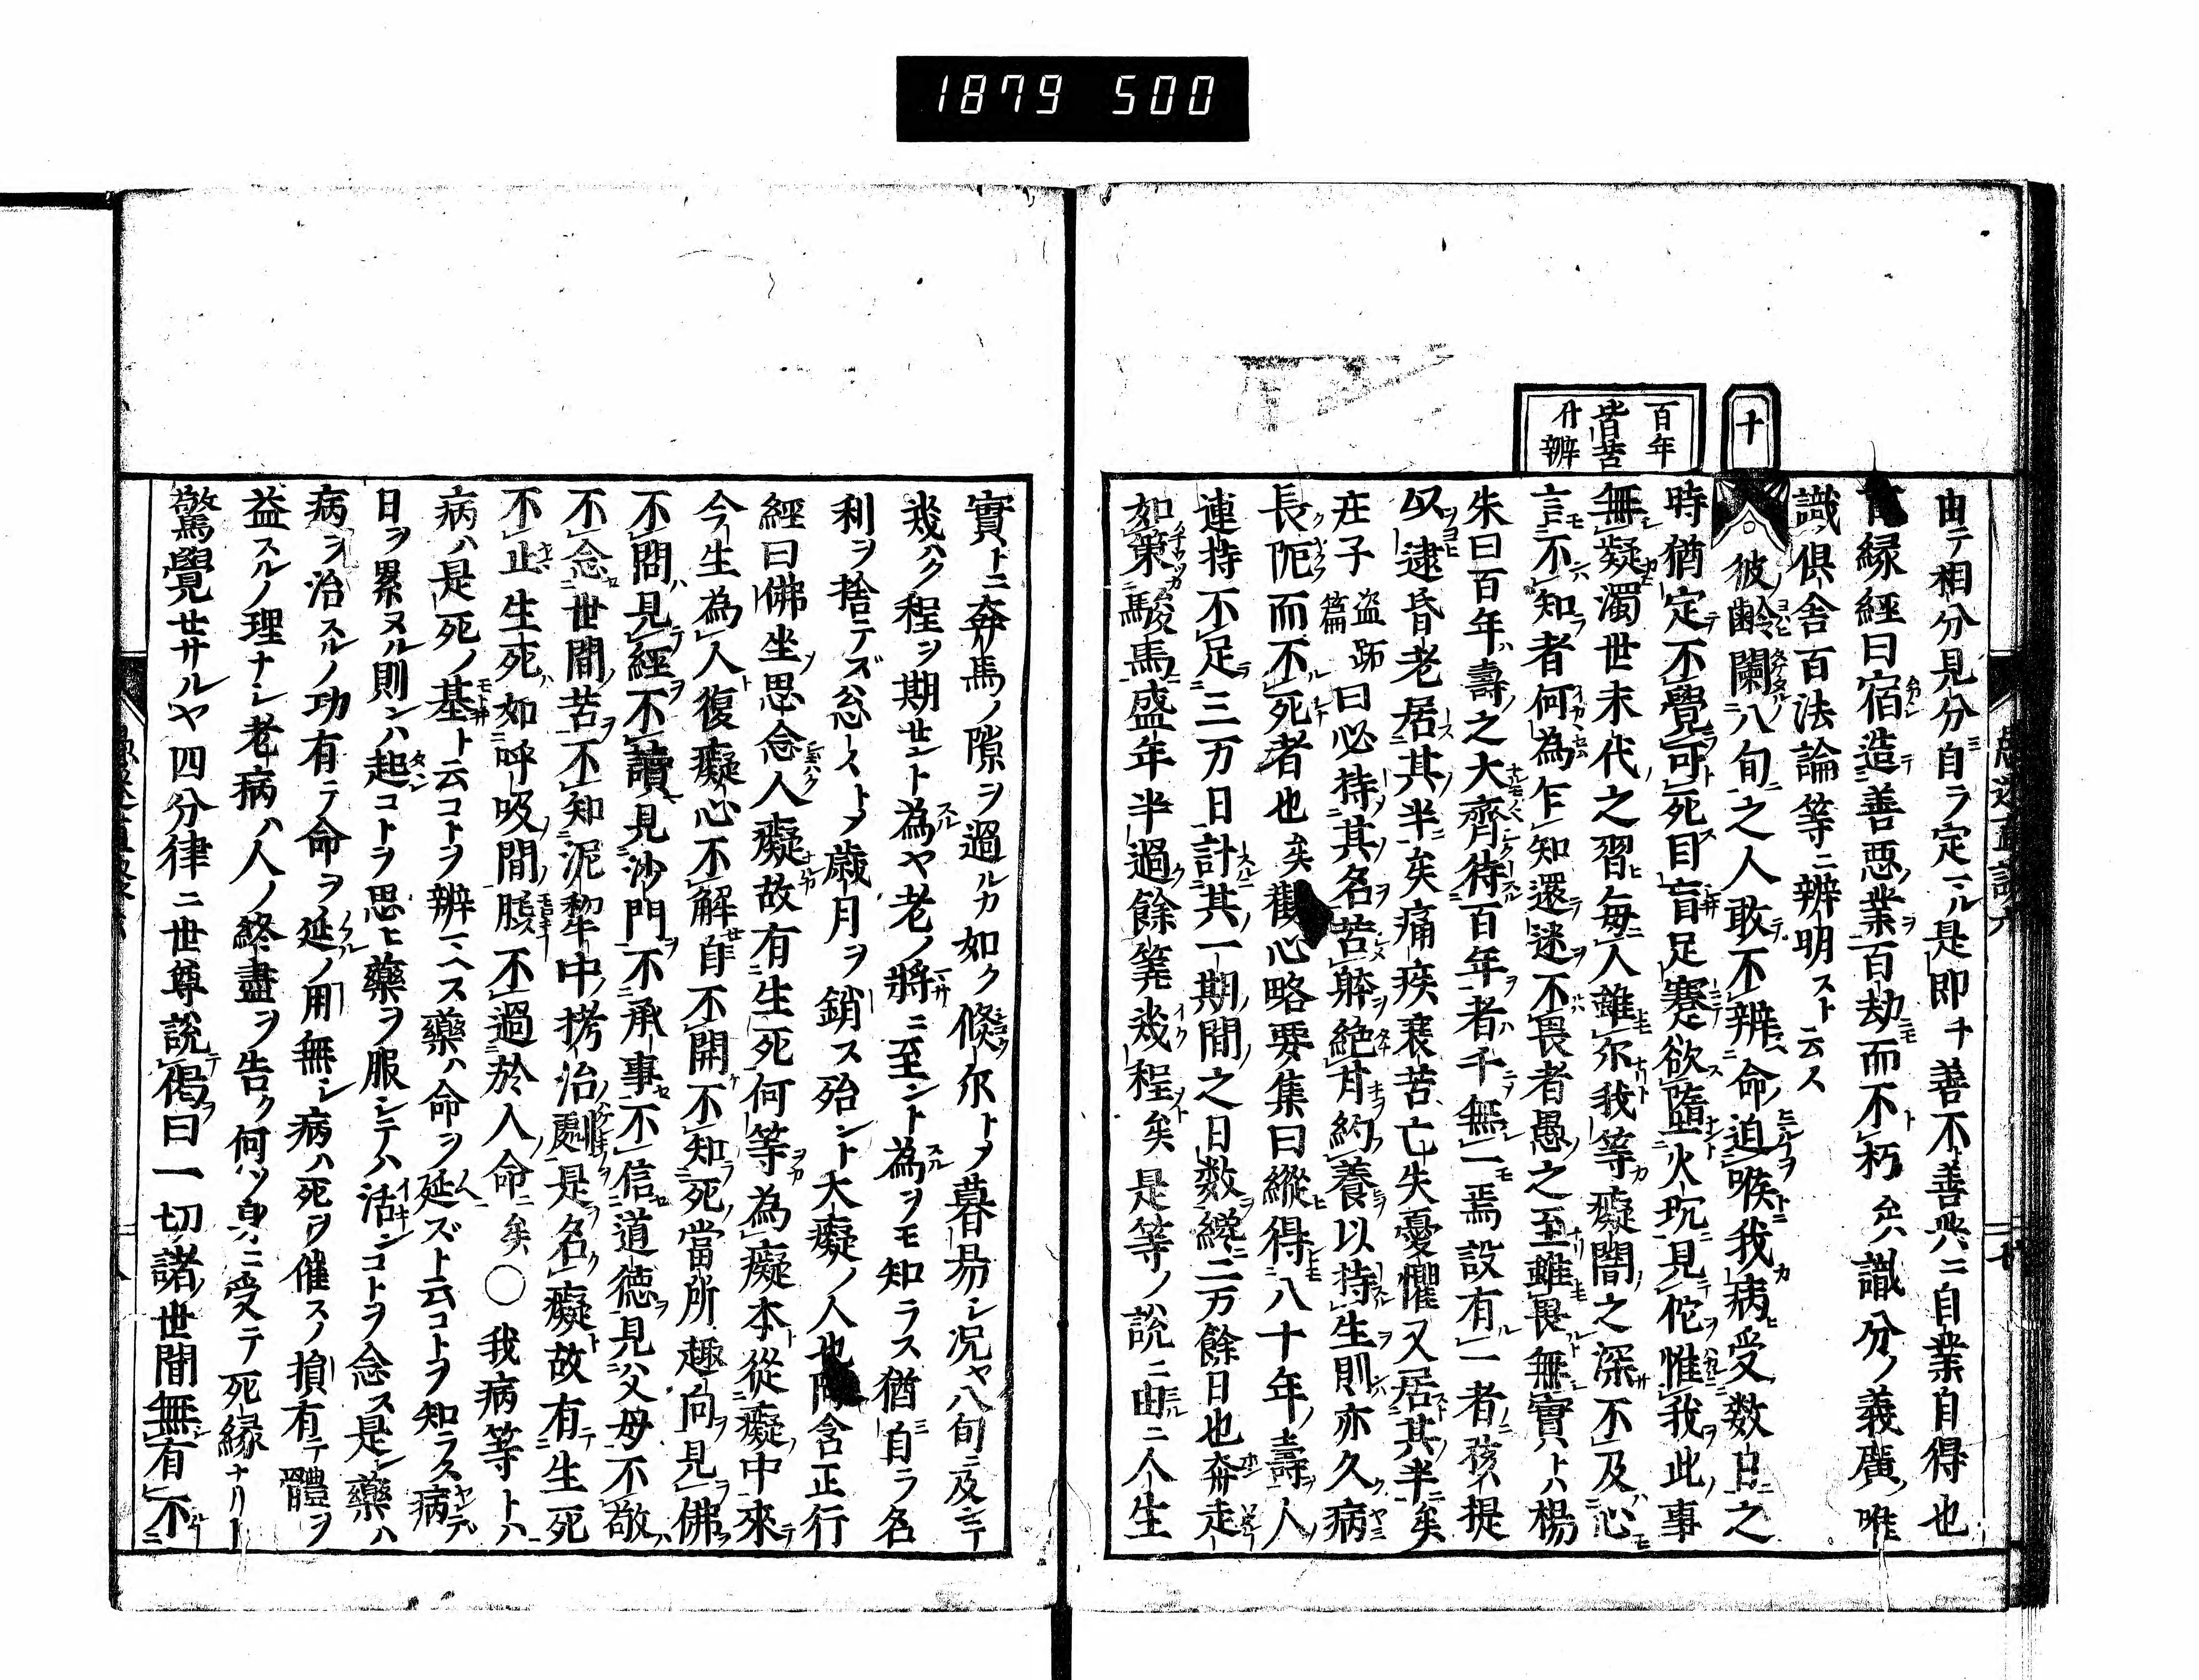 1879 500
十
百年
皆苦
廾辨
由テ相分見分自ラ定ル是即チ善不善共ニ自業自得也
縁經曰宿造善惡業百劫而不朽矣識分ノ義廣唯
識倶舎百法論等ニ辨明スト云ス
○彼齡闌八旬之人敢不辨命迫喉我病受数日之
時猶定不覺可死目盲足蹇欲墮火坑見佗惟我此事
無凝濁世末代之習毎人雖尓我等癡闇之深不及心
言不知者何為乍知還迷不畏者愚之至雖畏無實ハ楊
朱曰百年壽之大齊待百年者千無一焉設有一者孩提
以逮昏老居其半矣痛疾衰苦亡失憂懼又居其半矣
庄子盗跖篇曰必持其名苦躰絶甘約養以持生則亦久病
長阨而不死者也矣觀心略要集曰縱得八十年壽人
連持不足三万日計其一期間之日数纔二万餘日也奔走
如策駿馬盛年半過餘筭幾程矣是等ノ説ニ由ニ人生
實トニ奔馬ノ隙ヲ過ルカ如ク倐尓トメ暮易シ况ヤ八旬ニ及テ
幾ハク程ヲ期セント為ヤ老ノ將ニ至ント為ヲモ知ラス猶自ラ名
利ヲ捨テズ忩々トメ歳月ヲ銷ス殆ント大癡ノ人也 含正行
經曰佛坐思念人癡故有生死何等為癡本從癡中來
今生為人復癡心不解自不開不知死當所趣向見佛
不問見經不讀見沙門不承事不信道徳見父母不敬
不念世間苦不知泥犁中拷治劇是名癡故有生死
不止生死如呼吸間脹不過於人命矣○我病等トハ
病ハ是死ノ基ト云コトヲ辨ヘス藥ハ命ヲ延ズト云コトヲ知ラス病
日ヲ累ヌル則ンハ起コトヲ思ヒ藥ヲ服シテハ活ンコトヲ念ス是藥ハ
病ヲ治スルノ功有テ命ヲ延ノ用無シ病ハ死ヲ催スノ損有テ體ヲ
益スルノ理ナシ老病ハ人ノ終盡ヲ告ク何ソ身ニ受テ死縁ナリト
驚覺セサルヤ四分律ニ世尊説偈曰一切諸世間無有不